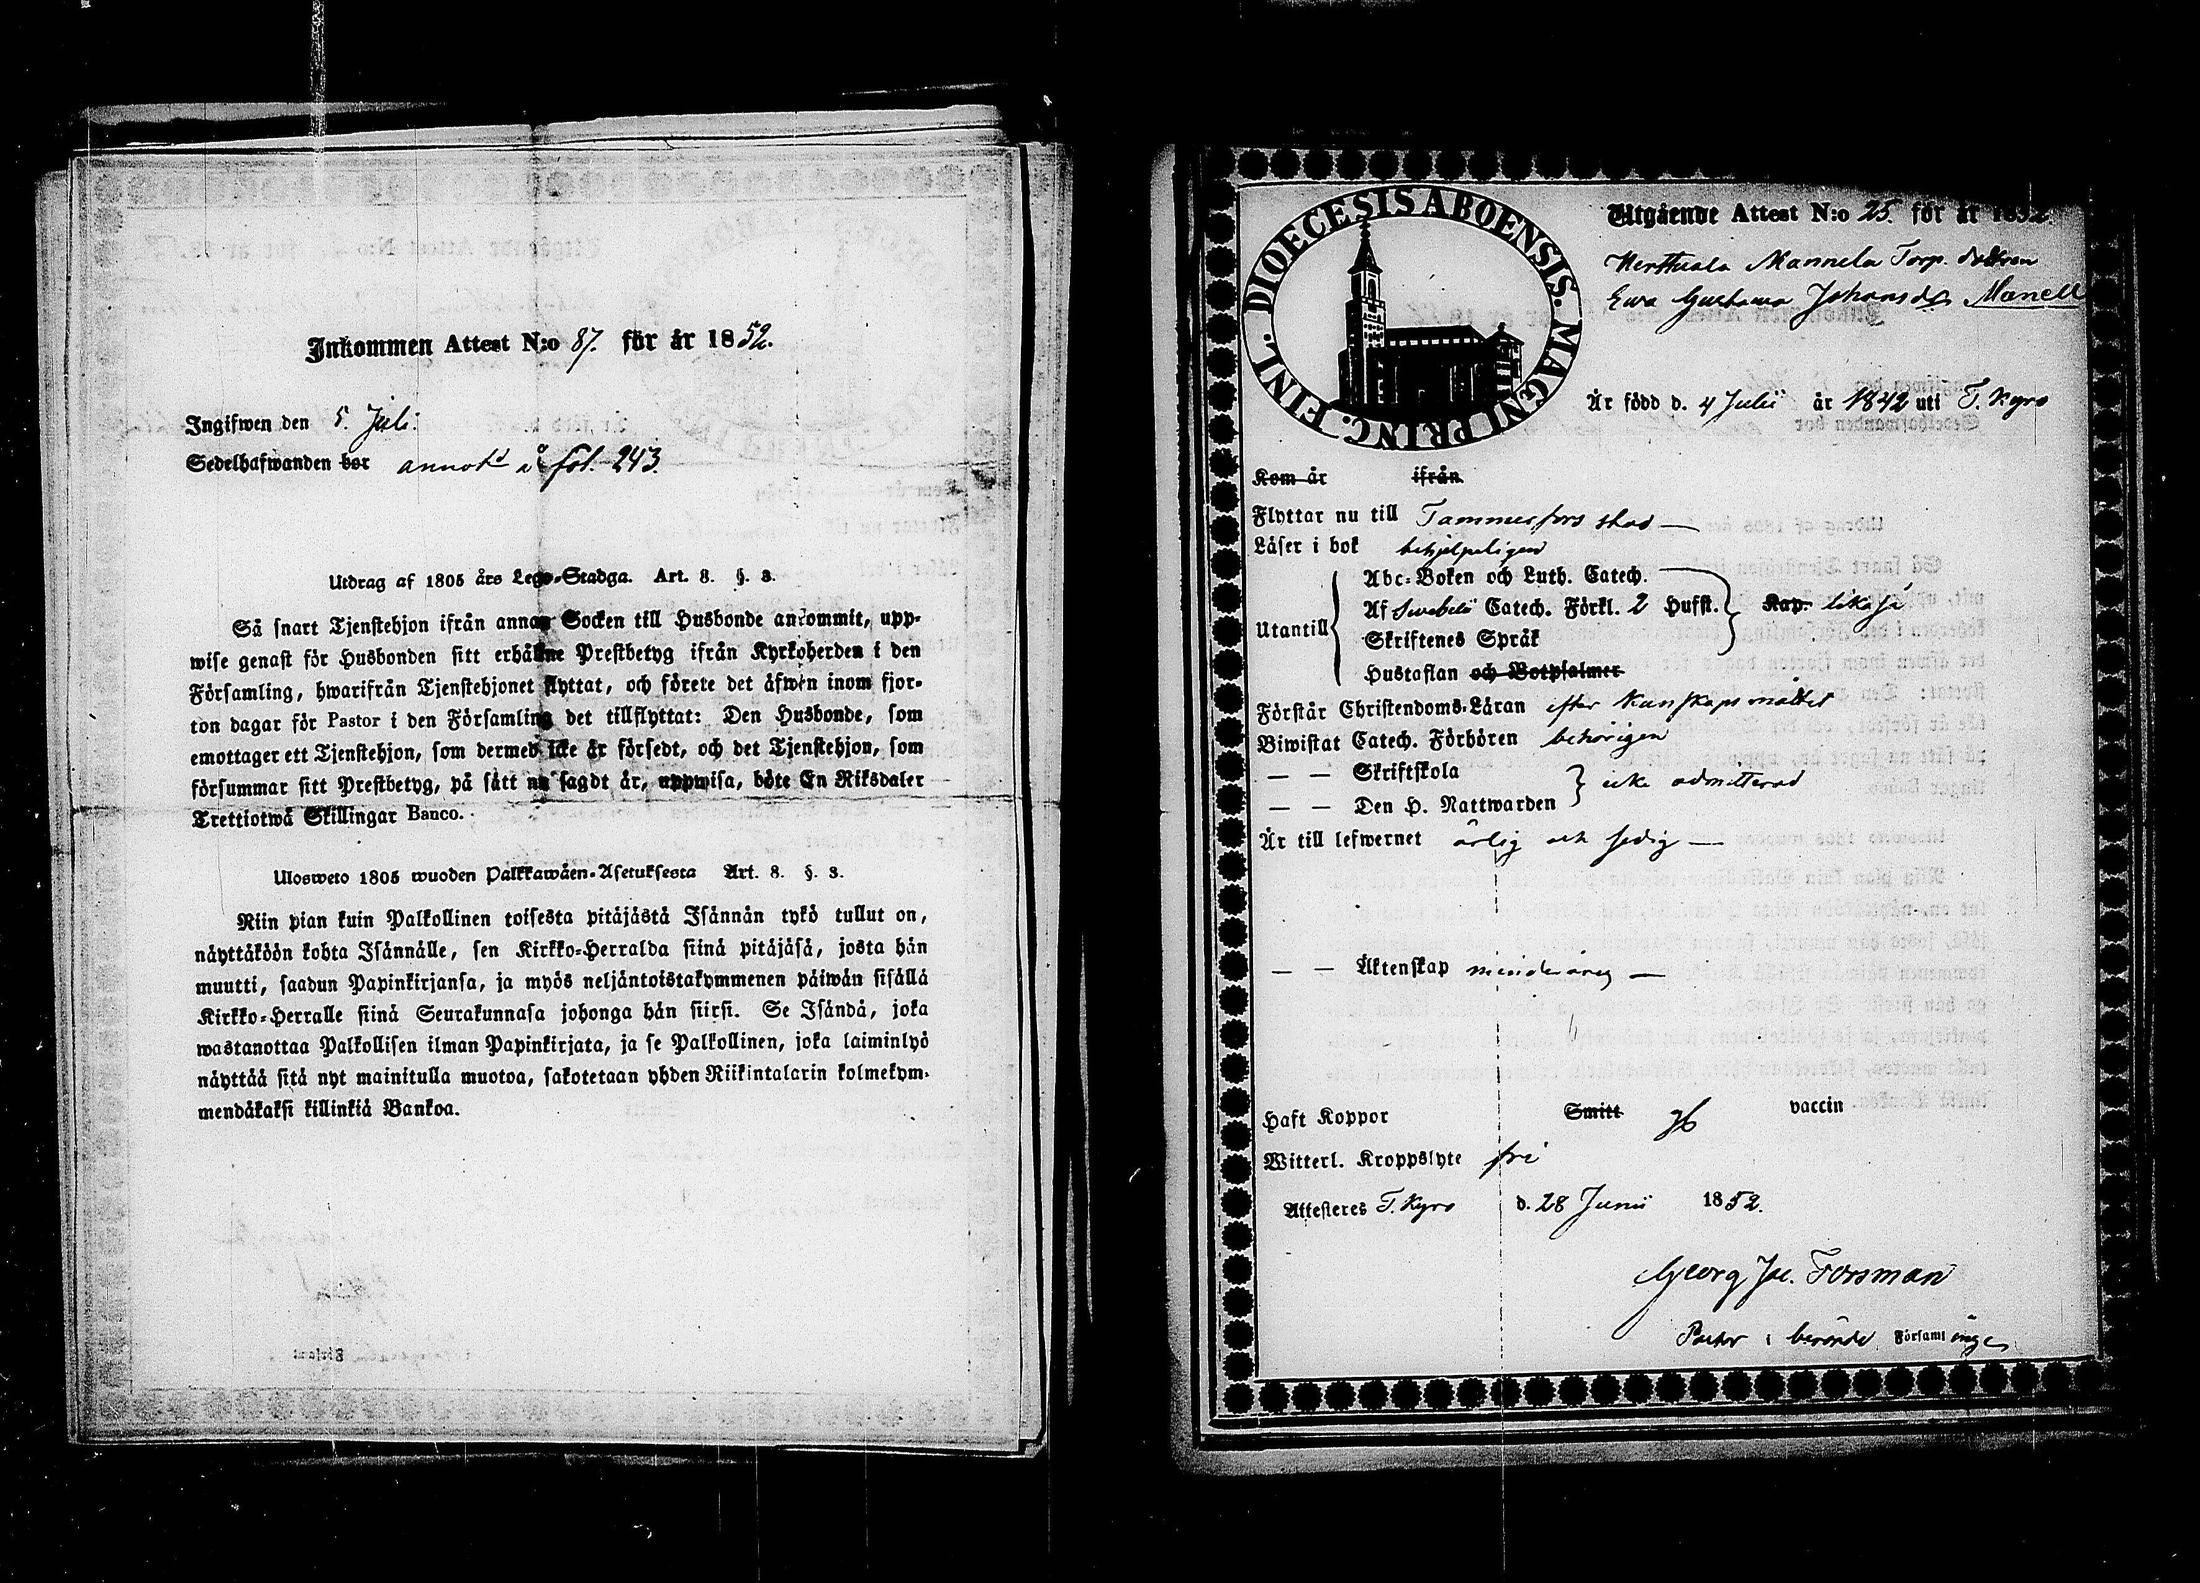 Inkommen Attest N:o 87. för år 1852.
Ingifwen den 5. Juli.
Sedelhafwanden bor annotd å fol. 243.
Utdrag af 1805 års Lego-Stadga. Art. 8. §. 3.
Så snart Tjenstehjon ifrån annan Socken till Husbonde ankommit, upp-
wise genast för Husbonden sitt erhållne Prestbetyg ifrån Kyrkoherden i den
Församling, hwarifrån Tjenstehjonet flyttat, och förete det äfwen inom fjor-
ton dagar för Pastor i den Församling det tillflyttat: Den Husbonde, som
emottager ett Tjenstehjon, som dermed icke är försedt, och det Tjenstehjon, som
försummar sitt Prestbetyg, på sätt nu sagdt är, uppwisa, böte En Riksdaler
Trettiotwå Skillingar Banco.
Ulosweto 1805 wuoden Palkkawäen-Asetuksesta Art. 8. §. 3.
Niin pian kuin Palkollinen toisesta pitäjästä Isännän tykö tullut on,
näyttäköön kohta Isännälle, sen Kirkko-Herralda siinä pitäjäsä, josta hän
muutti, saadun Papinkirjansa, ja myös neljäntoistakymmenen päiwän sisällä
Kirkko-Herralle siinä Seurakunnasa johonga hän siirsi. Se Isändä, joka
wastanottaa Palkollisen ilman Papinkirjata, ja se Palkollinen, joka laiminlyö
näyttää sitä nyt mainitulla muotoa, sakotetaan yhden Riikintalarin kolmekym-
mendäkaksi killinkiä Bankoa.
DIOECESIS ABOENSIS. MAGNI PRINC. FINL.
Utgående Attest N:o 25. för år 1852
Herttuala Mannela Torp. dottren
Ewa Gustawa Johansdr Manell
Är född d. 4 Julii år 1842 uti T. Kyro
Kom år ifrån
Flyttar nu till Tammerfors stad
Läser i bok behjelpeligen
Utantill Abc-Boken och Luth. Catech.
Af Swebelii Catech. Förkl. 2 Hufst. Kap. likaså
Skriftenes Språk
Hustaflan och Botpsalmer
Förstår Christendoms-Läran efter kunskaps måttet
Biwistat Catech. Förhören behörigen
— — Skriftskola
— — Den H. Nattwarden icke admitterad
Är till lefwernet ärlig och sedig
— — Äktenskap minderårig
Haft Koppor Smitt gb vaccin
Witterl. Kroppslyte fri
Attesteres T. Kyro d. 28 Junii 1852.
Georg Jac. Forsman
Pastor i berörde Församlinge